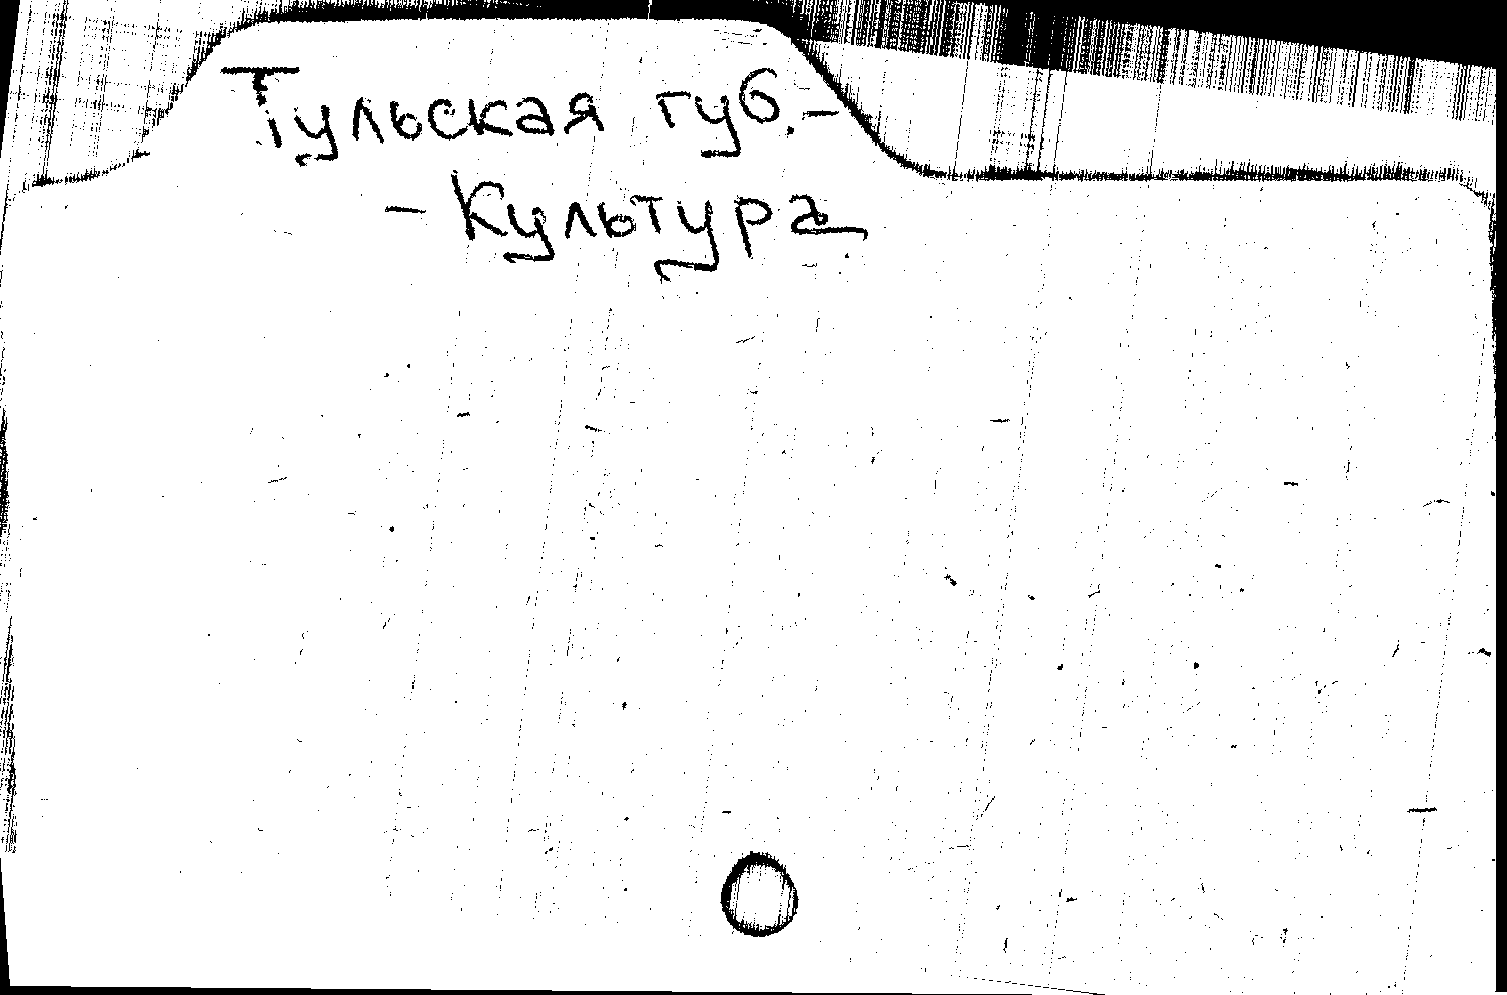 Тульская губ. -
- Культура